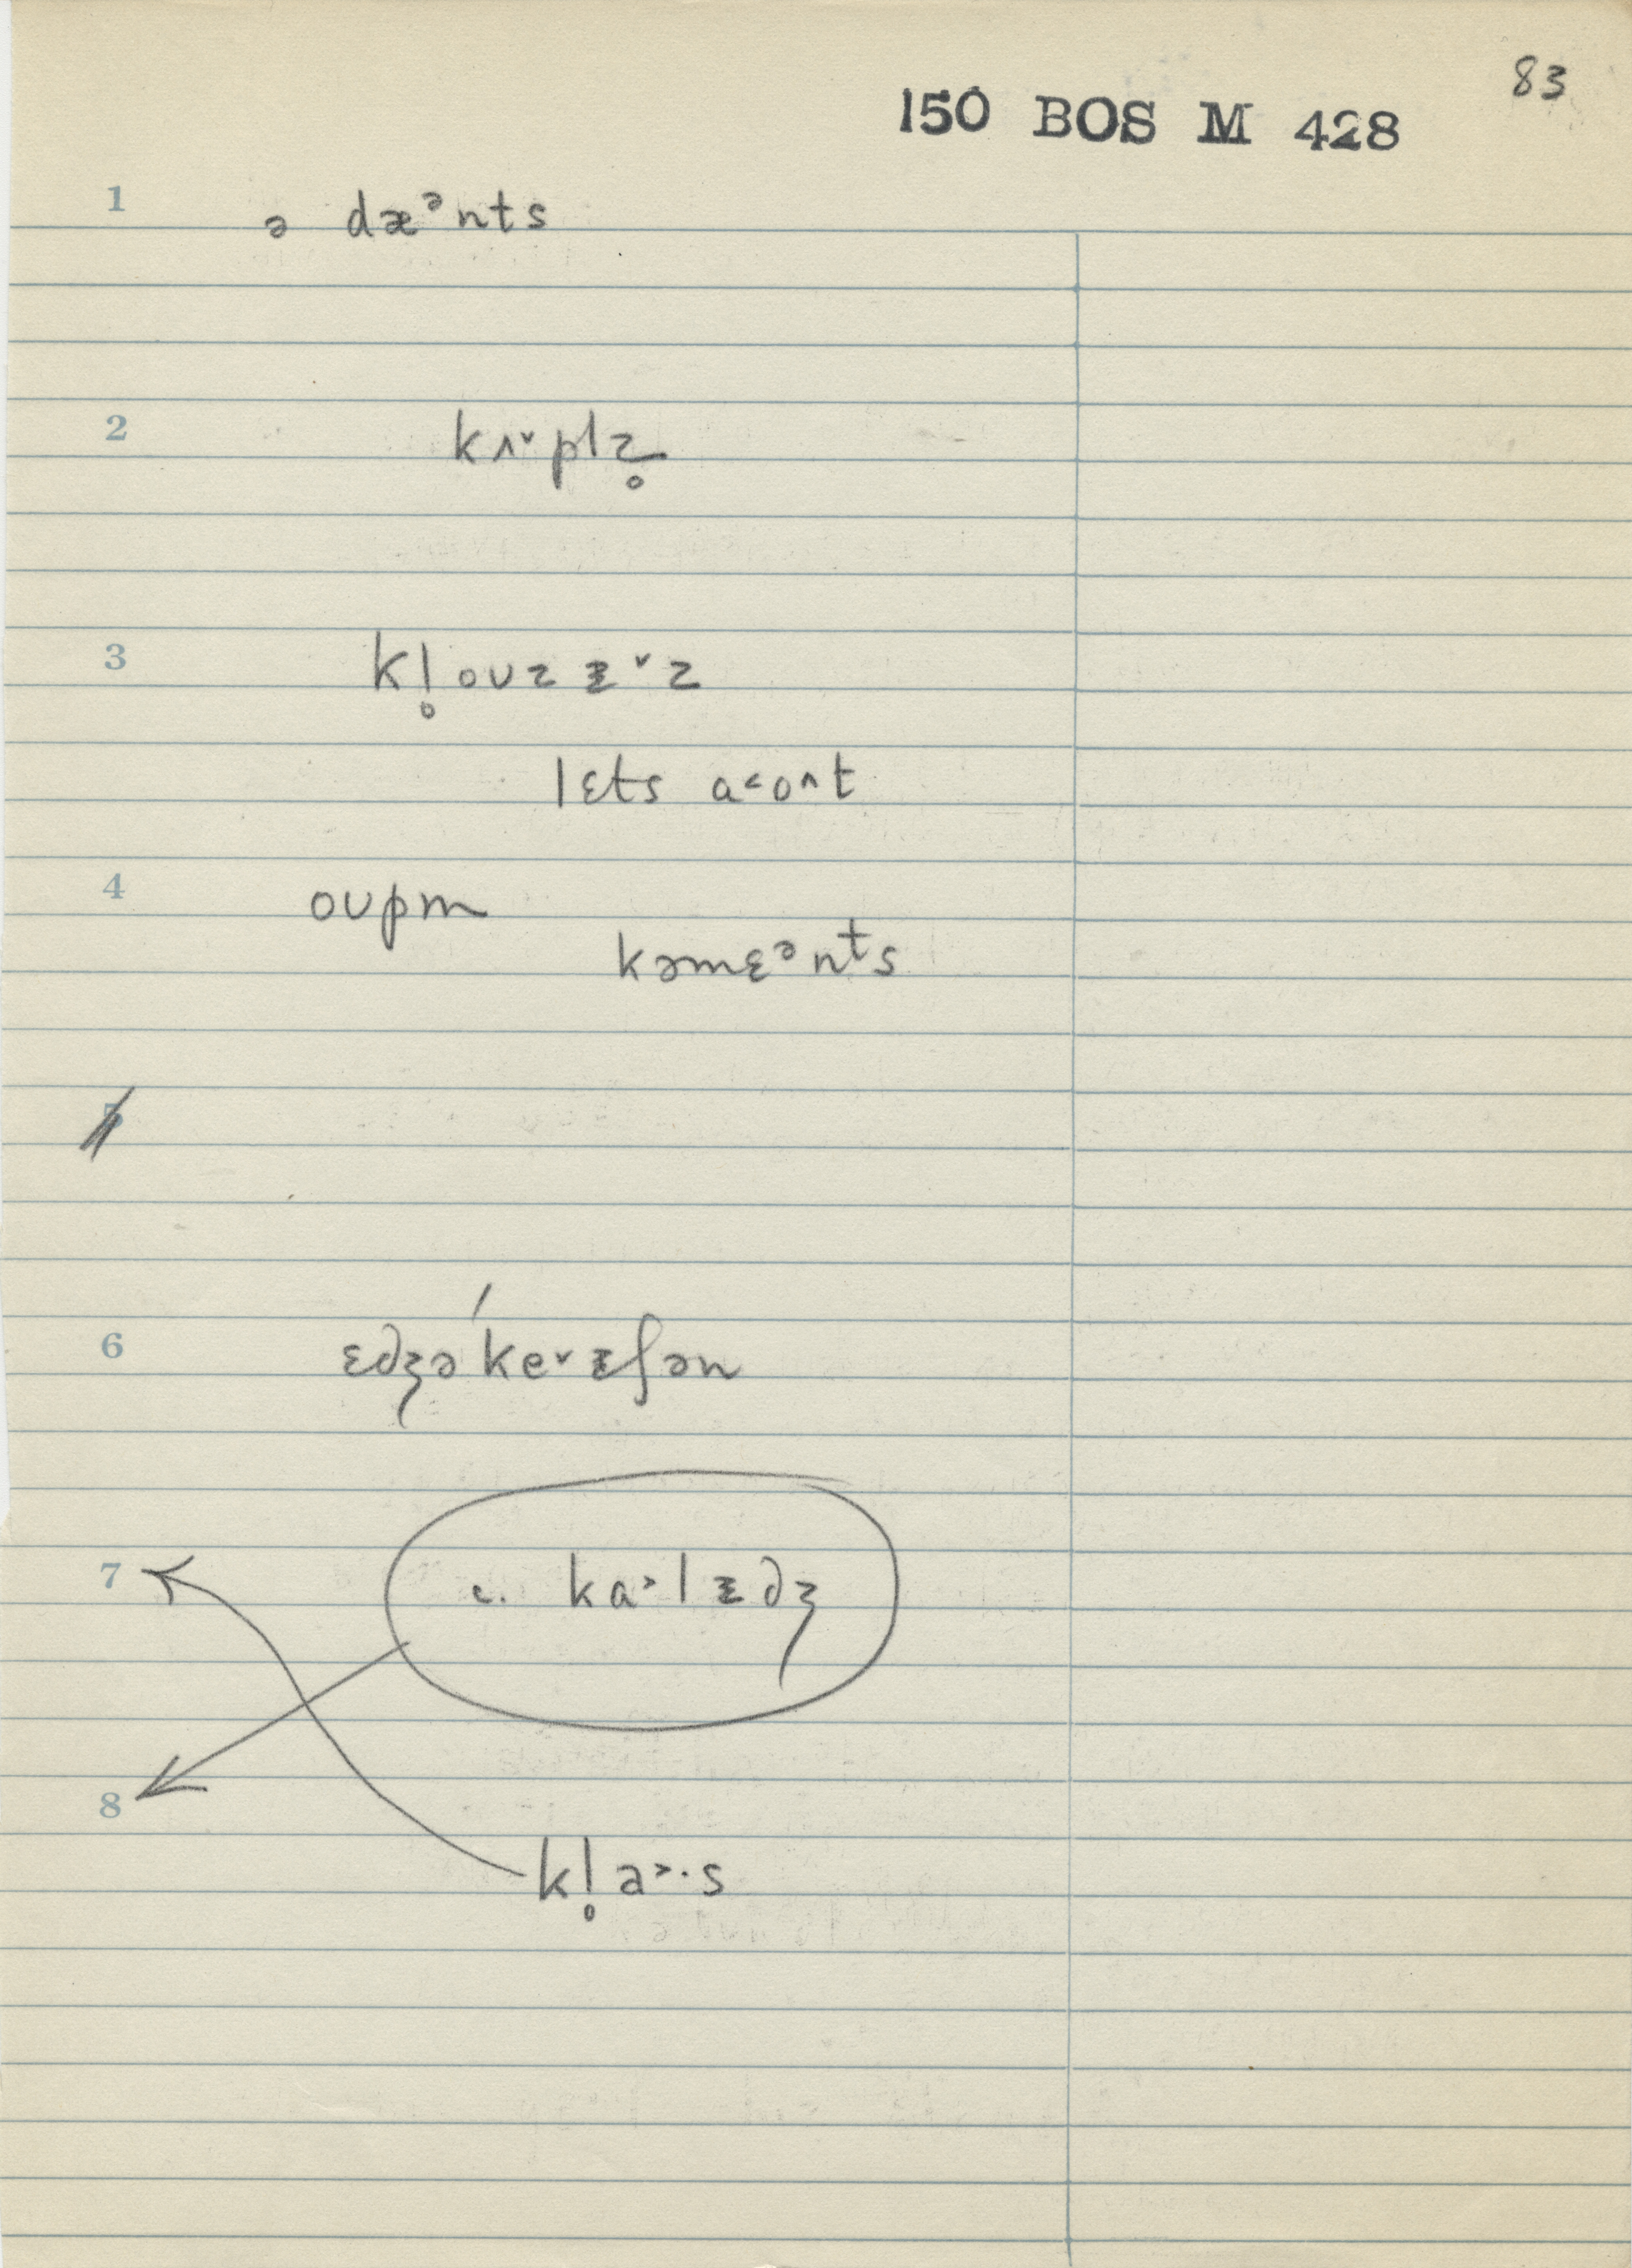 83
150 BOS M 428
1 ə dæᵊnts
2 kʌ˅plz̥
3 kl̥oᴜzᵻ˅z
lɛts a˂o˄t
4 oᴜpm
kəmɛᵊnts
5
6 ɛdʒəˈke˅ᵻʃən
7 c. ka˃lᵻdʒ
8 kl̥a˃·s